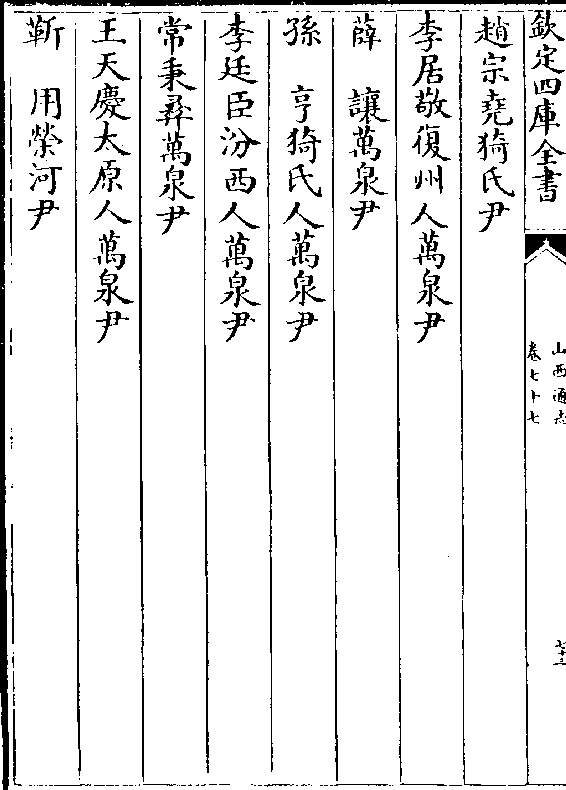 欽定四庫全書
山西通志
卷七十七
七十三
趙宗堯猗氏尹
李居敬復州人萬泉尹
薛　讓萬泉尹
孫　亨猗氏人萬泉尹
李廷臣汾西人萬泉尹
常秉彝萬泉尹
王天慶太原人萬泉尹
靳　用榮河尹